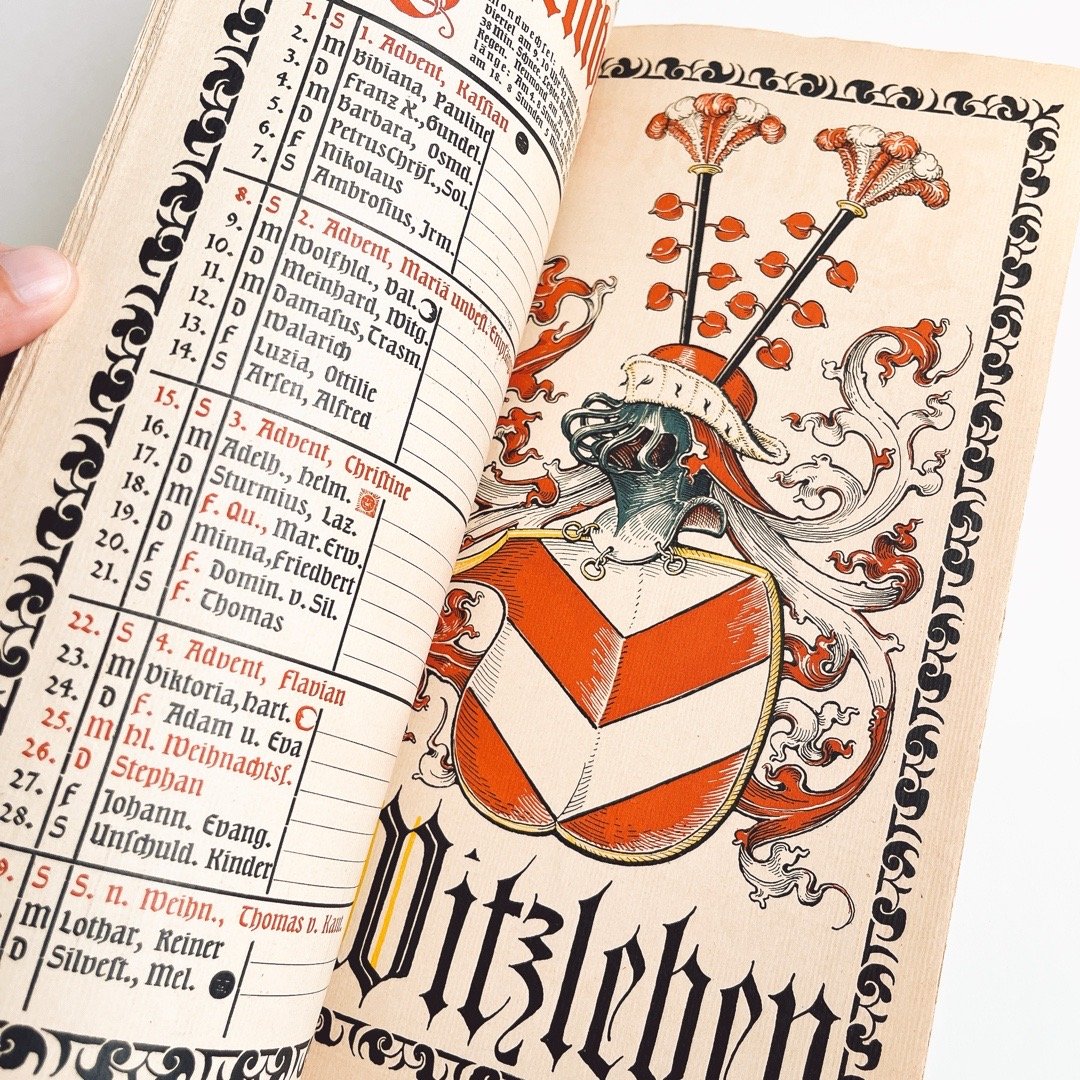 Mondwechsel:
Viertel am 9. 10 Uhr
38 Min. Schnee. Letztes
Regen. Neumond am
länge: Am 4. 8
am 18. 8 Stunden
1. S 1. Advent, Kassian
2. M Bibiana, Pauline
3. D Franz X., Gundel.
4. M Barbara, Osmd.
5. D PetrusChrys., Sol.
6. F Nikolaus
7. S Ambrosius, Irm.
8. S 2. Advent, Mariä unbefl.
9. M Wolfhld., Val.
10. D Meinhard, Witg.
11. M Damasus, Trasm
12. D Walarich
13. F Luzia, Ottilie
14. S Arsen, Alfred
15. S 3. Advent, Christine
16. M Adelh., Helm.
17. D Sturmius, Laz.
18. M F. Qu., Mar. Erw.
19. D Minna, Friedbert
20. F F. Domin. v. Sil.
21. S F. Thomas
22. S 4. Advent, Flavian
23. M Viktoria, Hart.
24. D F. Adam u. Eva
25. M Hl. Weihnachtsf.
26. D Stephan
27. F Johann. Evang.
28. S Unschuld. Kinder
9. S S. n. Weihn., Thomas v. Kant.
M Lothar, Reiner
D Silvest., Mel.
Witzleben